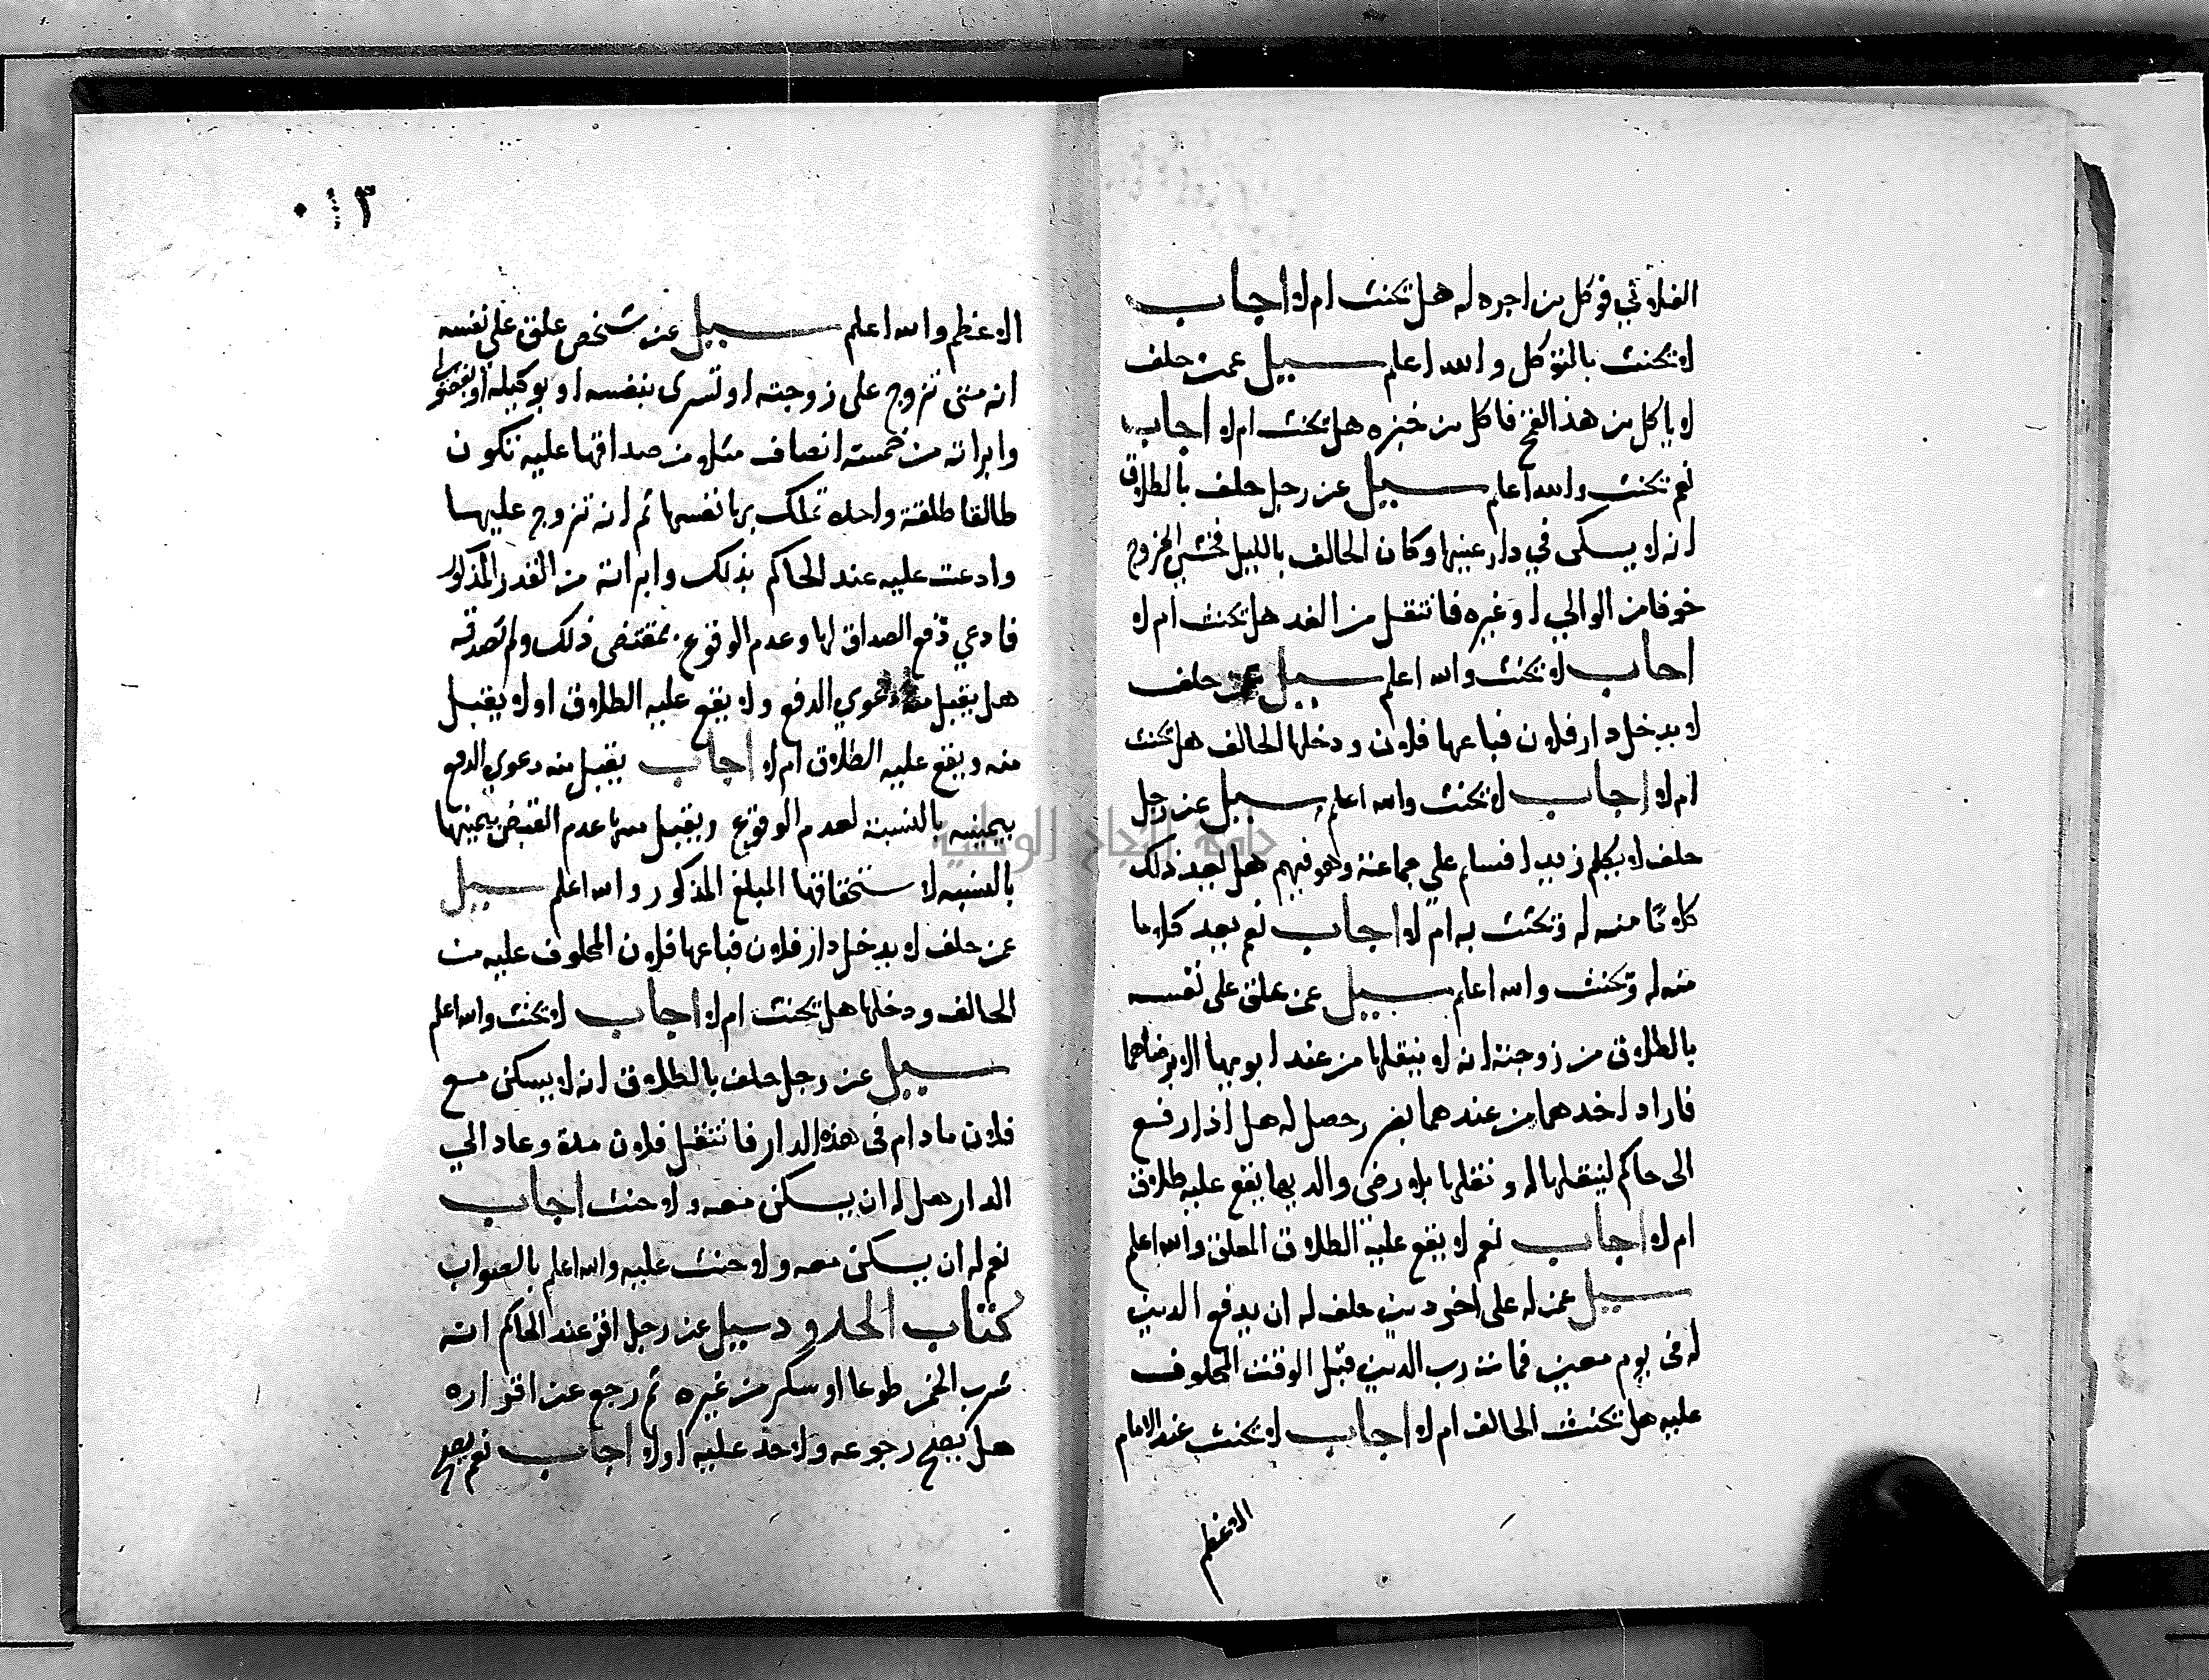 الفلاني فوكل من اجره له هل يحنث ام لا اجاب
لا يحنث بالتوكل والله اعلم سيل عمن حلف
لا ياكل من هذا القمح فاكل من خبزه هل يحنث ام لا اجاب
نعم يحنث والله اعلم سيل عن رجل حلف بالطلاق
انه لا يسكن في دار عينها وكان الحالف بالليل فخشي الخروج
خوفا من الوالي او غيره فانتقل من الغد هل يحنث ام لا
اجاب لا يحنث والله اعلم سيل عمن حلف
لا يدخل دار فلان فباعها فلان ودخلها الحالف هل يحنث
ام لا اجاب لا يحنث والله اعلم سيل عن رجل
حلف لا يكلم زيدا فسلم علي جماعة وهو فيهم هل يعد ذلك
كلاما منه له ويحنث به ام لا اجاب نعم يعد كلاما
منه له ويحنث والله اعلم سيل عمن علق على نفسه
بالطلاق من زوجته انه لا ينقلها من عند ابويها الا برضاهما
فاراد اخدهما من عندهما لضر حصل له هل اذا رفع
الى حاكم لينقلها له ونقلها بلا رضي والديها يقع عليه طلاق
ام لا اجاب نعم لا يقع عليه الطلاق المعلق والله اعلم
سيل عمن له على اخر دين حلف له ان يدفع الدين
له في يوم معين فمات رب الدين قبل الوقت المحلوف
عليه هل يحنث الحالف ام لا اجاب لا يحنث عند الامام
الاعظم
٣
الاعظم والله اعلم سيل عن شخص علق على نفسه
انه متى تزوج على زوجته او تسرى بنفسه او بوكيله او بفضولي
وابراته من خمسة انصاف مثلا من صداقها عليه تكون
طالقا طلقة واحدة تملك بها نفسها ثم انه تزوج عليها
وادعت عليه عند الحاكم بذلك وابراته من القدر المذكور
فادعي دفع الصداق لها وعدم الوقوع بمقتضى ذلك ولم تصدقه
هل يقبل منه دعوي الدفع ولا يقع عليه الطلاق او لا يقبل
منه ويقع عليه الطلاق ام لا اجاب يقبل منه دعوي الدفع
بيمينه بالنسبة لعدم الوقوع ويقبل منها عدم القبض بيمينها
بالنسبه لاستحقاقها المبلغ المذكور والله اعلم سيل
عن حلف لا يدخل دار فلان فباعها فلان المحلوف عليه من
الحالف ودخلها هل يحنث ام لا اجاب لا يحنث والله اعلم
سيل عن رجل حلف بالطلاق انه لا يسكن مع
فلان مادام في هذه الدار فانتقل فلان مدة وعاد الي
الدار هل له ان يسكن معه ولا حنث اجاب
نعم له ان يسكن معه ولا حنث عليه والله اعلم بالصواب
كتاب الحدود سيل عن رجل اقر عند الحاكم انه
شرب الخمر طوعا او سكر من غيره ثم رجع عن اقراره
هل يصح رجوعه ولا حد عليه اولا اجاب نعم يصح